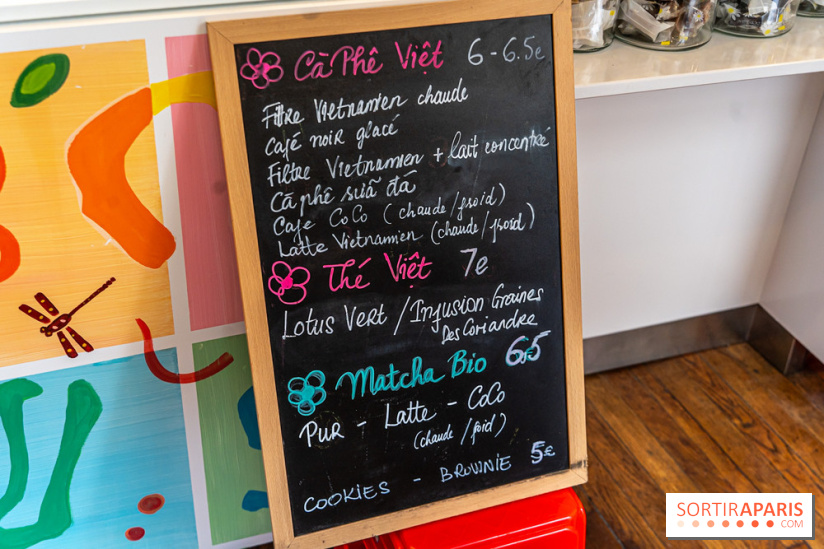 Cà Phê Việt 6 - 6.5e
Filtre Vietnamien chaude
Café noir glacé
Filtre Vietnamien + lait concentré
Cà phê sữa đá
Cafe CoCo (chaude/froid)
Latte Vietnamien (chaude/froid)
Thé Việt 7e
Lotus Vert / Infusion Graines
Des Coriandre
Matcha Bio 6.5
Pur - Latte - CoCo
(chaude/foid)
COOKIES - BROWNIE 5€
SORTIRAPARIS
.COM